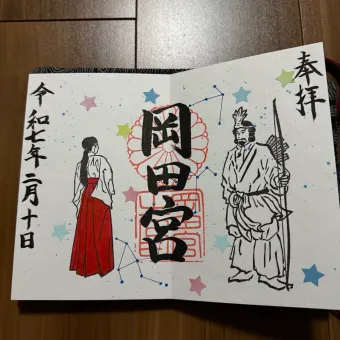 奉拝
岡田宮
令和七年二月十日